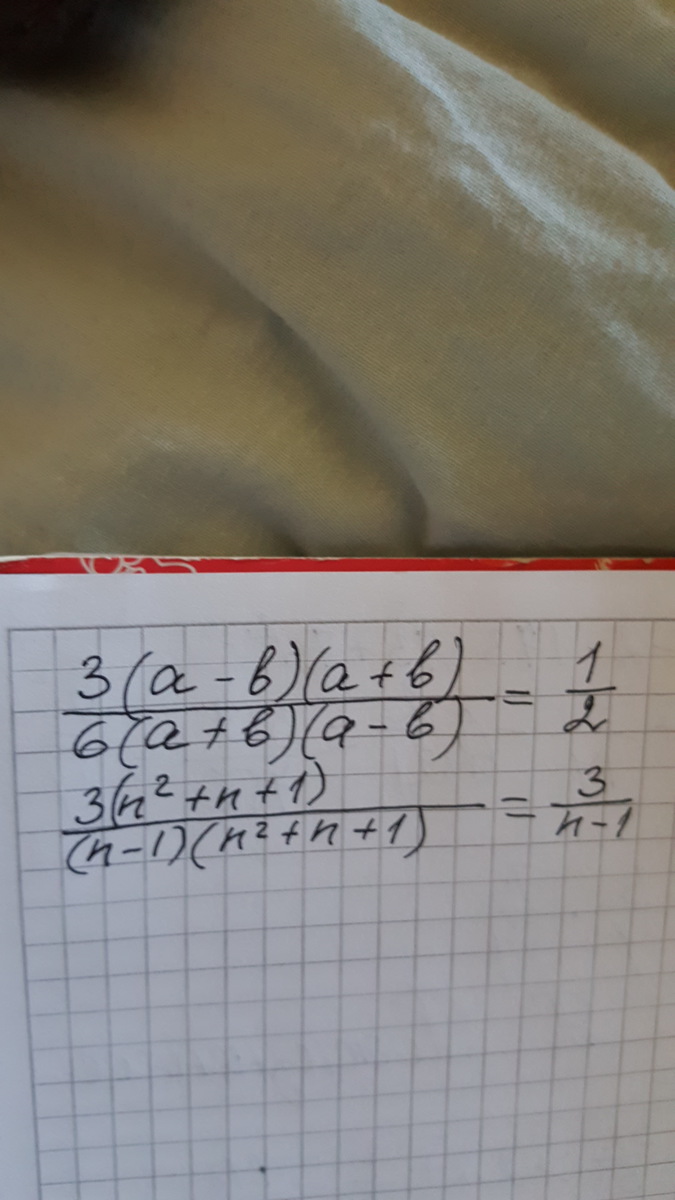 3(a-b)(a+b)/6(a+b)(a-b) = 1/2
3(n²+n+1)/(n-1)(n²+n+1) = 3/n-1